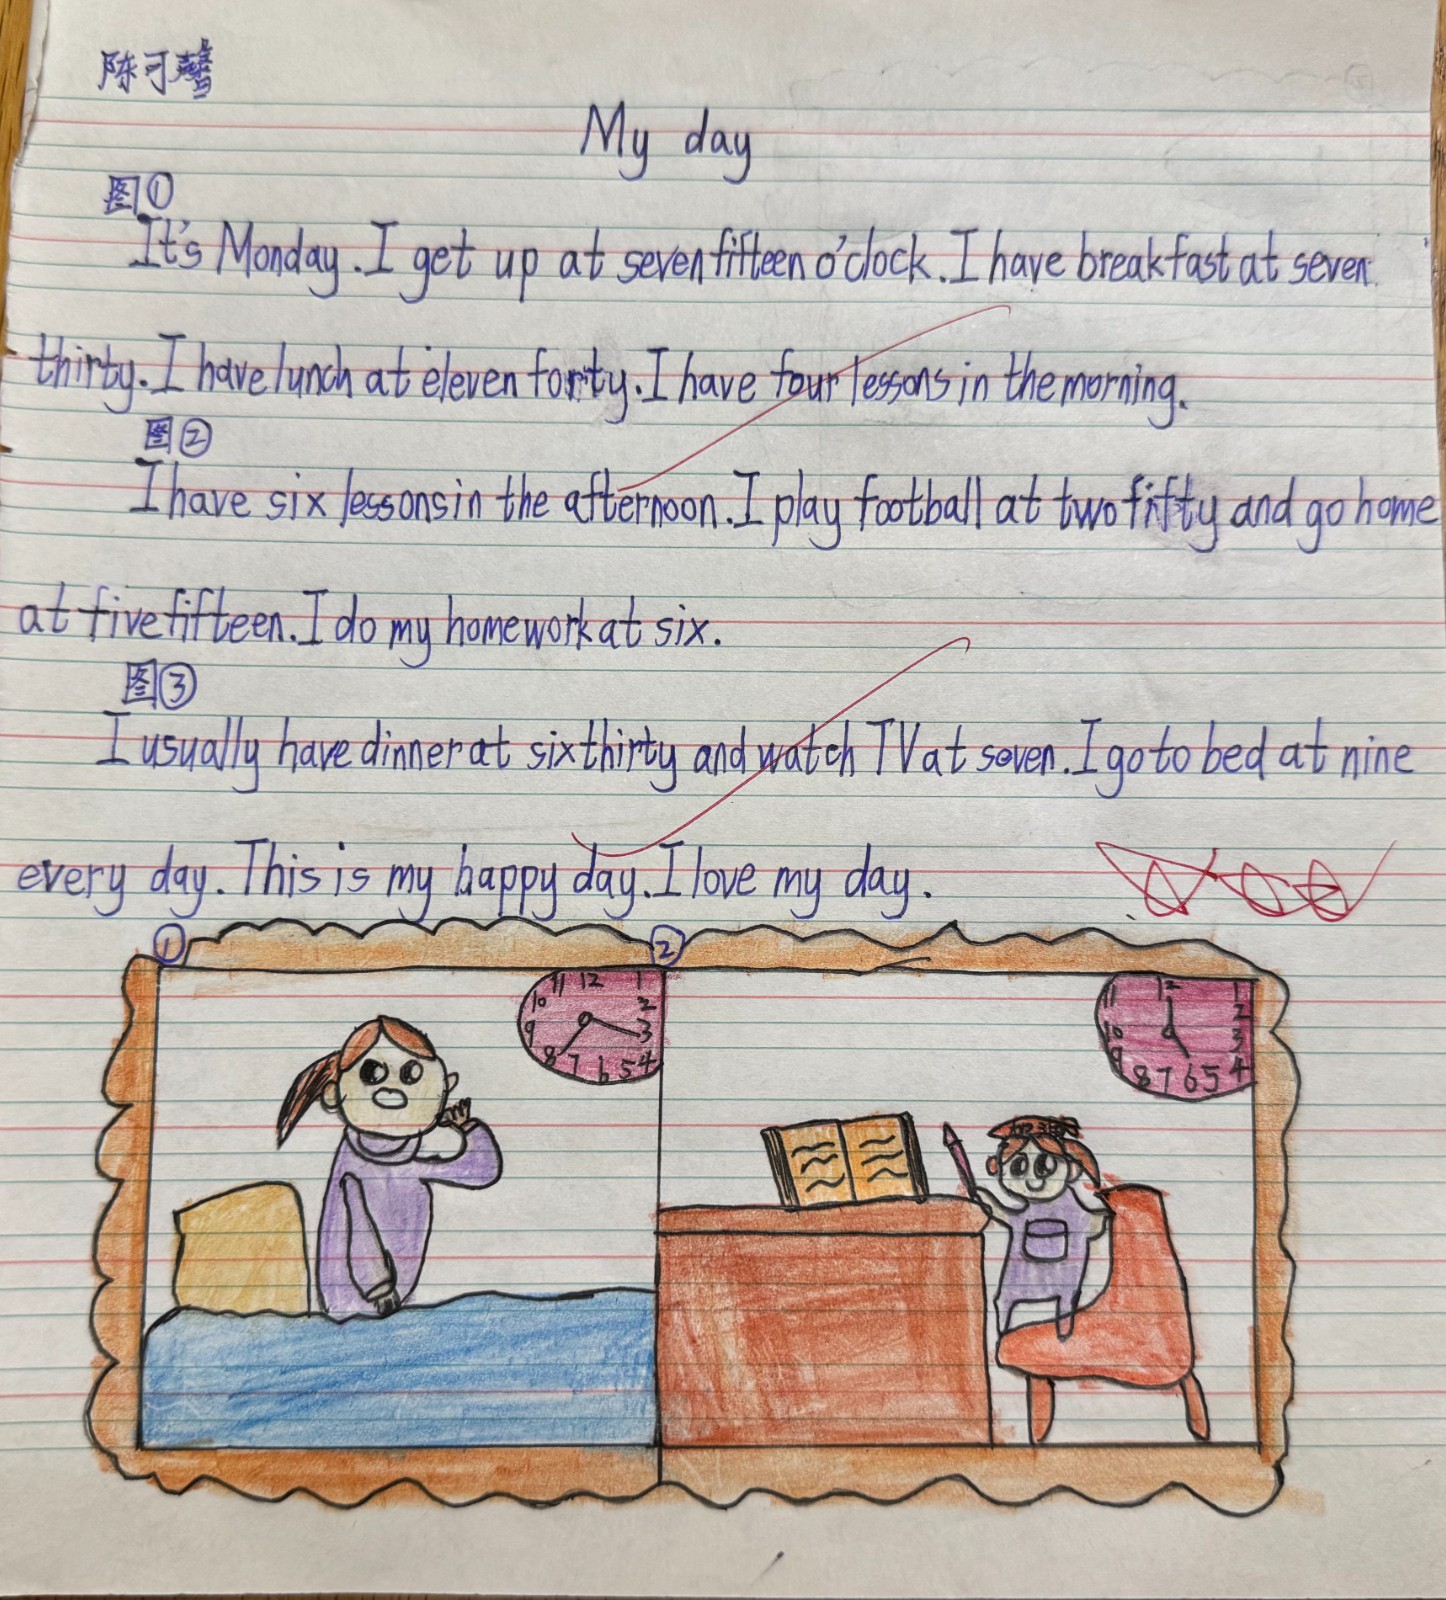 陈可馨
My day
图①
It's Monday. I get up at seven fifteen o'clock. I have breakfast at seven
thirty. I have lunch at eleven forty. I have four lessons in the morning.
图②
I have six lessons in the afternoon. I play football at two fifty and go home
at five fifteen. I do my homework at six.
图③
I usually have dinner at six thirty and watch TV at seven. I go to bed at nine
every day. This is my happy day. I love my day.
① ②
11 12 1
10 2
9 3
8 7 6 5 4
11 12 1
2
10 3
9 8 7 6 5 4